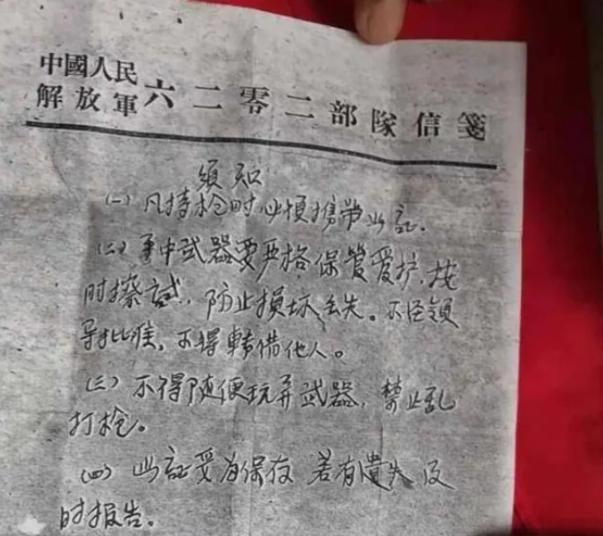 中國人民
解放軍六二零二部隊信箋
须知
(一)凡持枪时必须携带此証.
(二)手中武器要严格保管爱护,按
时擦拭,防止损坏丢失。不经领
导批准,不得轉借他人。
(三)不得随便玩弄武器,禁止乱
打枪。
(四)此証妥为保存 若有遗失及
时报告。